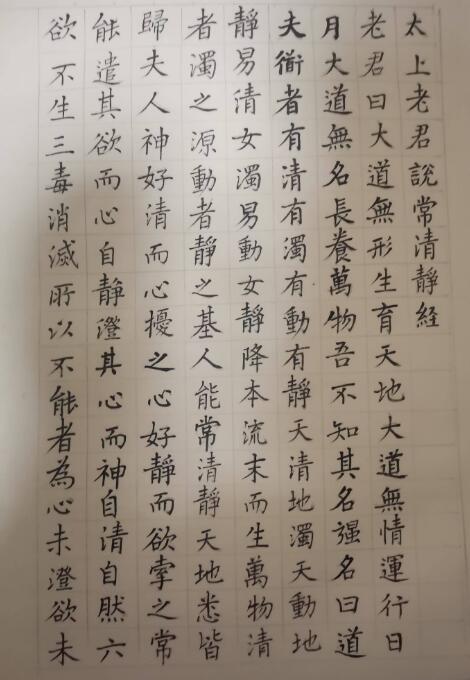 太上老君說常清靜経
老君曰大道無形生育天地大道無情運行日
月大道無名長養萬物吾不知其名强名曰道
夫衜者有清有濁有動有靜天清地濁天動地
靜男清女濁男動女靜降本流末而生萬物清
者濁之源動者靜之基人能常清靜天地悉皆
歸夫人神好清而心擾之心好靜而欲牽之常
能遣其欲而心自靜澄其心而神自清自然六
欲不生三毒消滅所以不能者為心未澄欲未